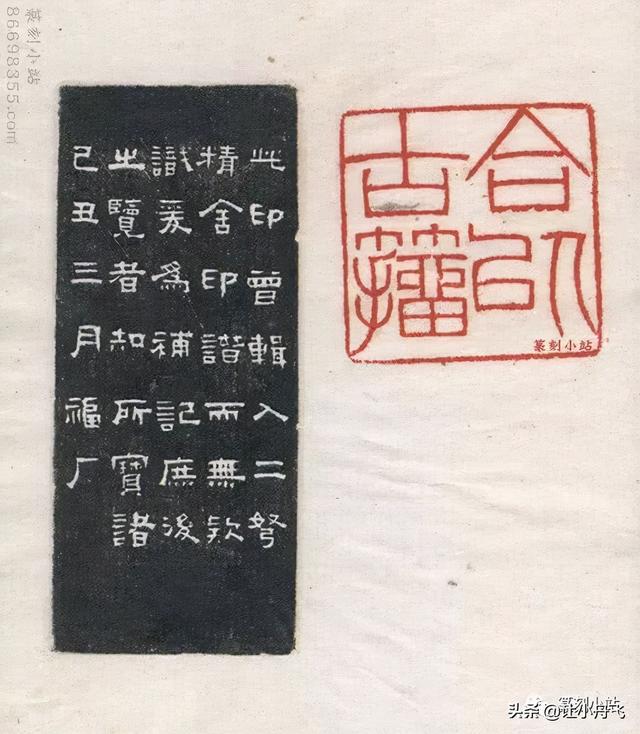 篆刻小站
86698355.com
此印曾輯入二弩
精舍印譜而無款
識爰為補記庶後
之覽者知所寶諸
己丑三月福厂
合
古
篆刻小站
篆刻小站
头条 @让小